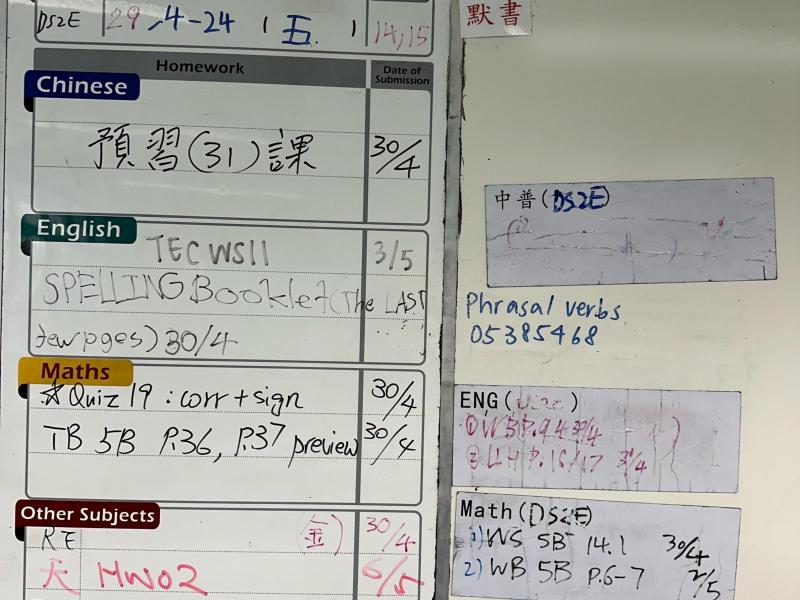 DS2E 29-4-24 (五) 14,15
Homework Date of Submission
Chinese
預習(31)課 30/4
English
TEC WS11 3/5
SPELLING Booklet (The LAST
few pges) 30/4
Maths
☆ Quiz 19 : corr + sign 30/4
TB 5B P.36, P.37 preview 30/4
Other Subjects
RE (金) 30/4
天 HW02 6/5
默書
中普(DS2E)
Phrasal verbs
05385468
ENG( )
① WB P.94 30/4
② LLH P.16/17 30/4
Math(DS2E)
1) WS 5B 14.1 30/4
2) WB 5B P.6-7 2/5